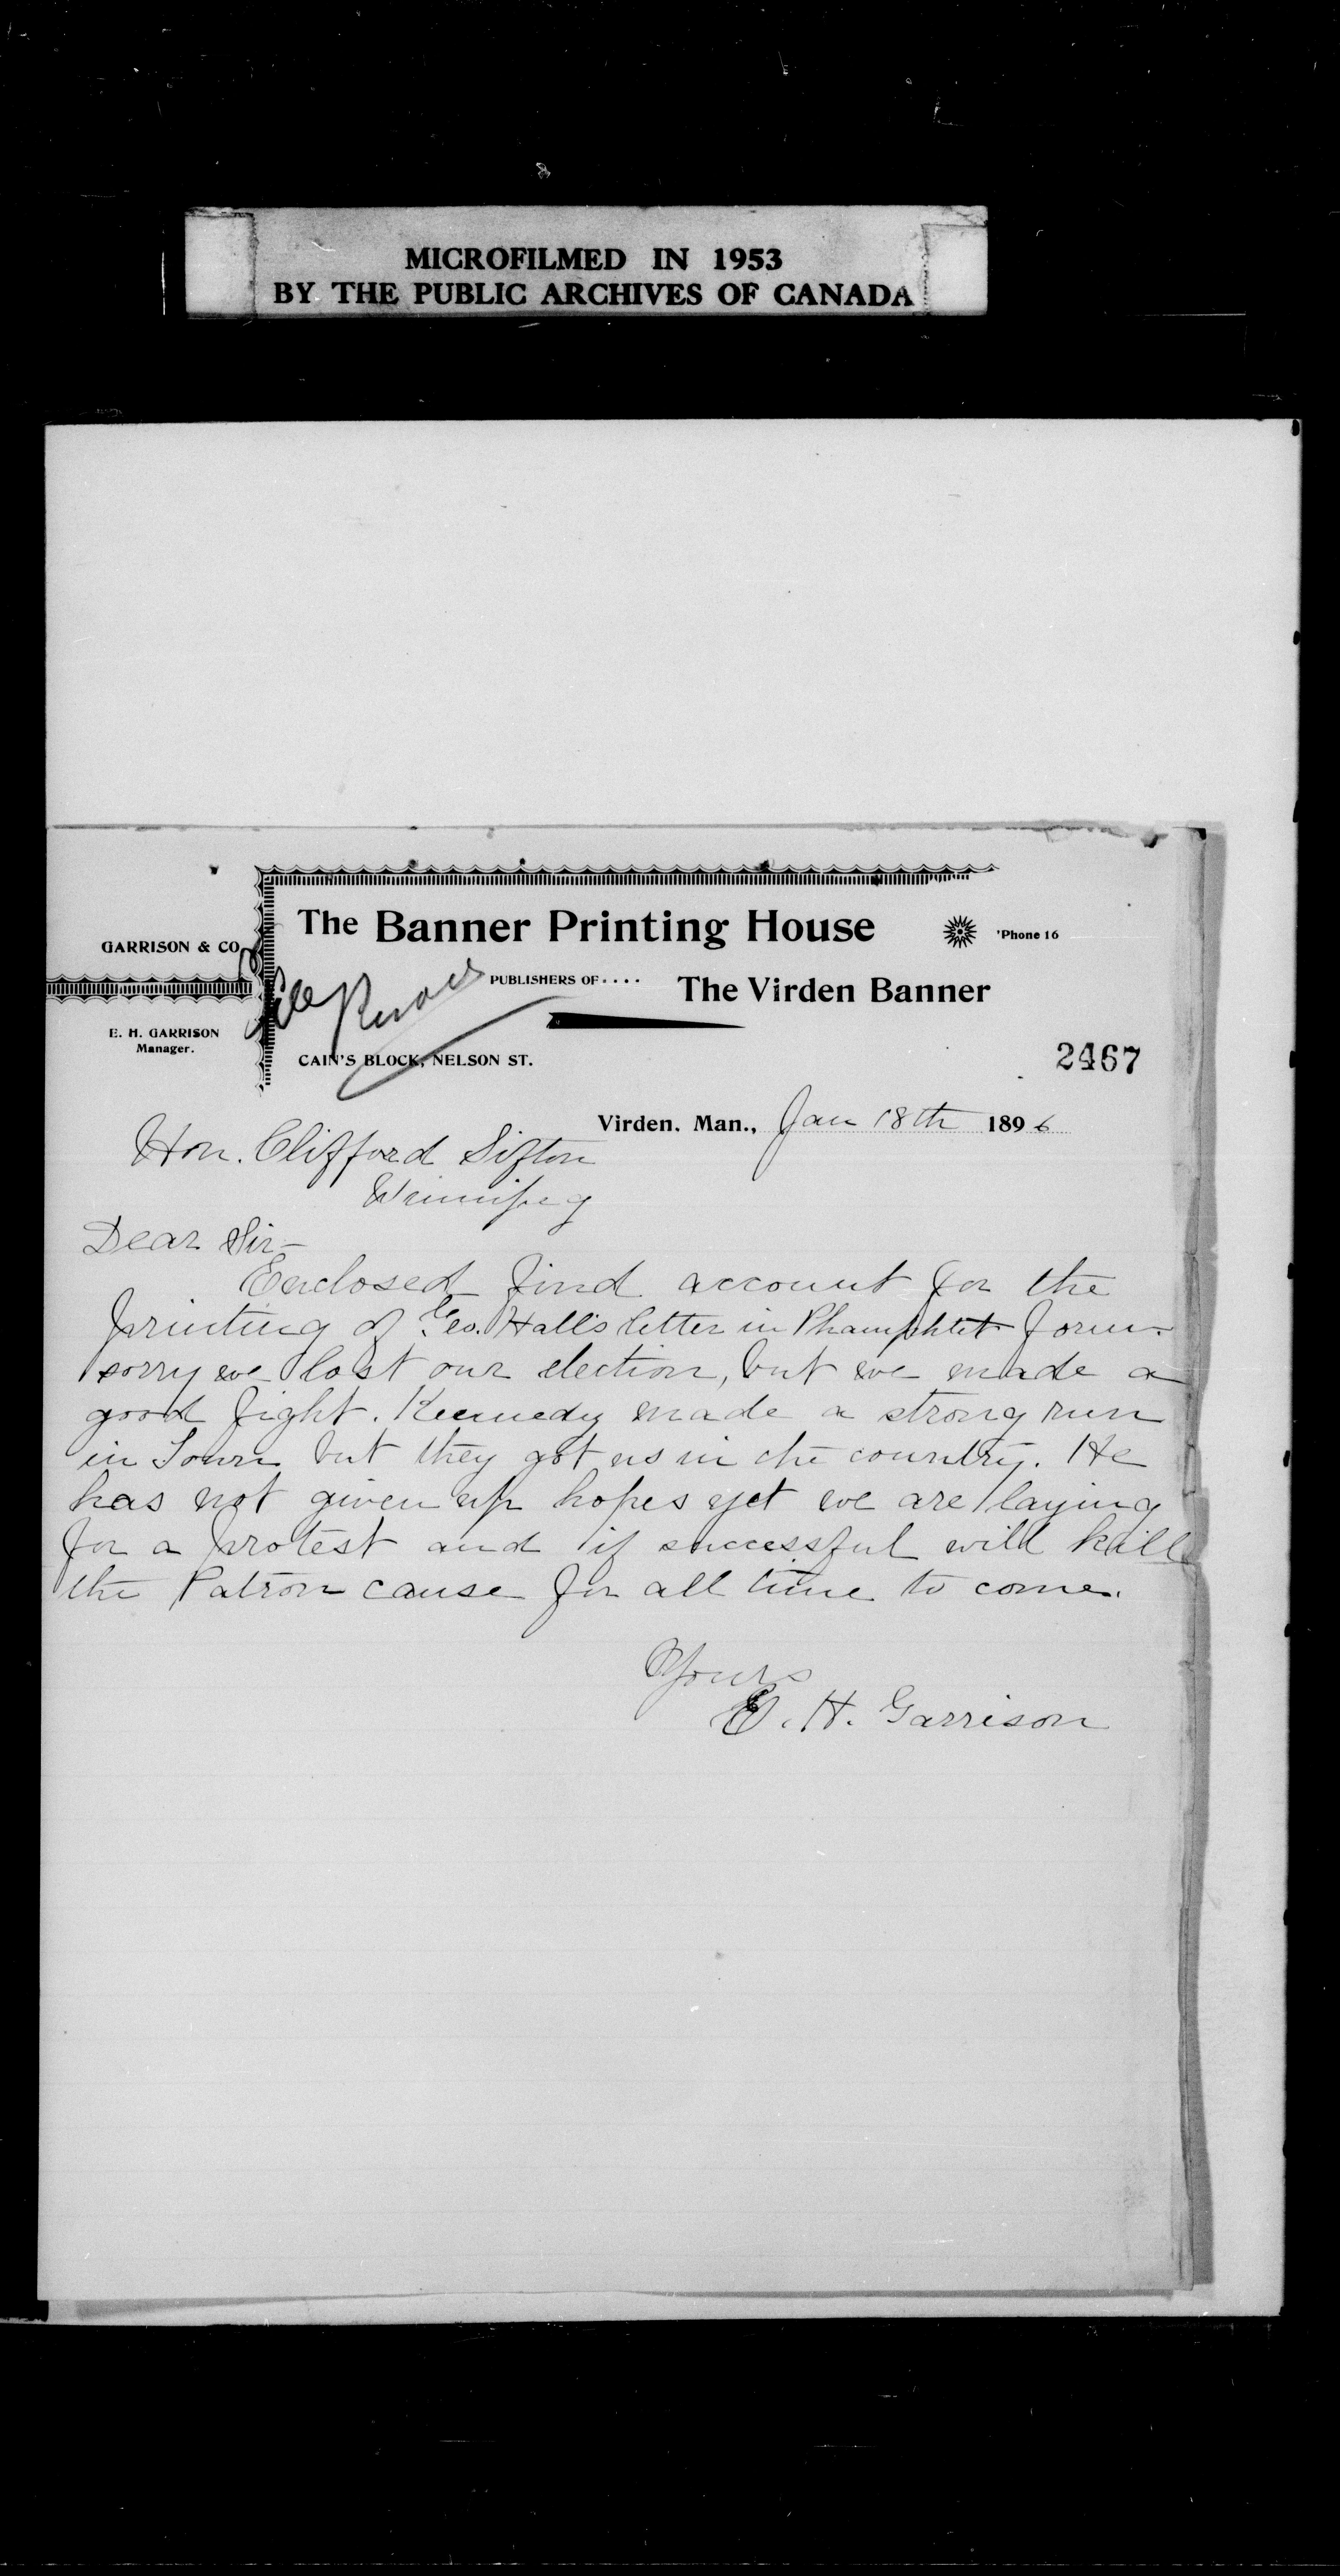 MICROFILMED IN 1953
BY THE PUBLIC ARCHIVES OF CANADA
GARRISON & CO
E. H. GARRISON
Manager.
The Banner Printing House
'Phone 16
PUBLISHERS OF....
The Virden Banner
CAIN'S BLOCK, NELSON ST.
2467
Virden, Man., Jan 18th 1896
Hon. Clifford Sifton
Winnipeg
Dear Sir—
Enclosed find account for the
printing of Geo. Hall's letter in Phamphlet form.
sorry we lost our election, but we made a
good fight. Kennedy made a strong run
in Town but they got us in the country. He
has not given up hopes yet we are laying
for a protest and if successful will kill
the Patron cause for all time to come.
Yours
E. H. Garrison